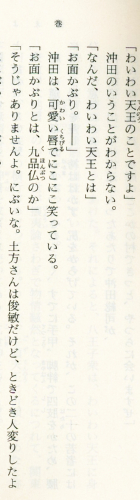 巻
「わいわい天王のことですよ」
沖田のいうことがわからない。
「なんだ、わいわい天王とは」
「お面かぶり。――」
沖田は、可愛い唇でにこにこ笑っている。
「お面かぶりとは、九品仏のか」
「そうじゃありませんよ。にぶいな。土方さんは俊敏だけど、ときどき人変りしたよ